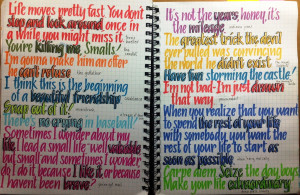 Life moves pretty fast. You don't
stop and look around once in
a while you might miss it.
You're killing me, Smalls!
I'm gonna make him an offer
he can't refuse
I think this is the beginning
of a beautiful friendship
Snap out of it!
There's no crying in baseball!
Sometimes I wonder about my
life. I lead a small life-well valuable
but small and sometimes I wonder
do I do it because I like it or because
I haven't been brave?
It's not the years, honey, it's
the mileage
The greatest trick the devil
ever pulled was convincing
the world he didn't exist
Have fun storming the castle!
I'm not bad-I'm just drawn
that way
When you realize that you want
to spend the rest of your life
with somebody you want the
rest of your life to start as
soon as possible
Carpe diem, seize the day boys
Make your life extraordinary